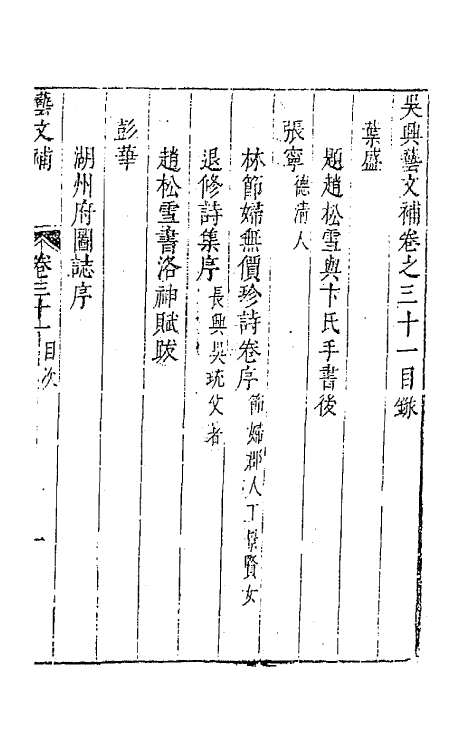 吳興藝文補卷之三十一目錄
葉盛
題趙松雪與卞氏手書後
張寧德清人
林節婦無價珍詩卷序節婦郡人丁賢女
退修詩集序長興吳珫父者
趙松雪書洛神賦跋
彭華
湖州府圖誌序
藝文補 卷三十一 目次 一